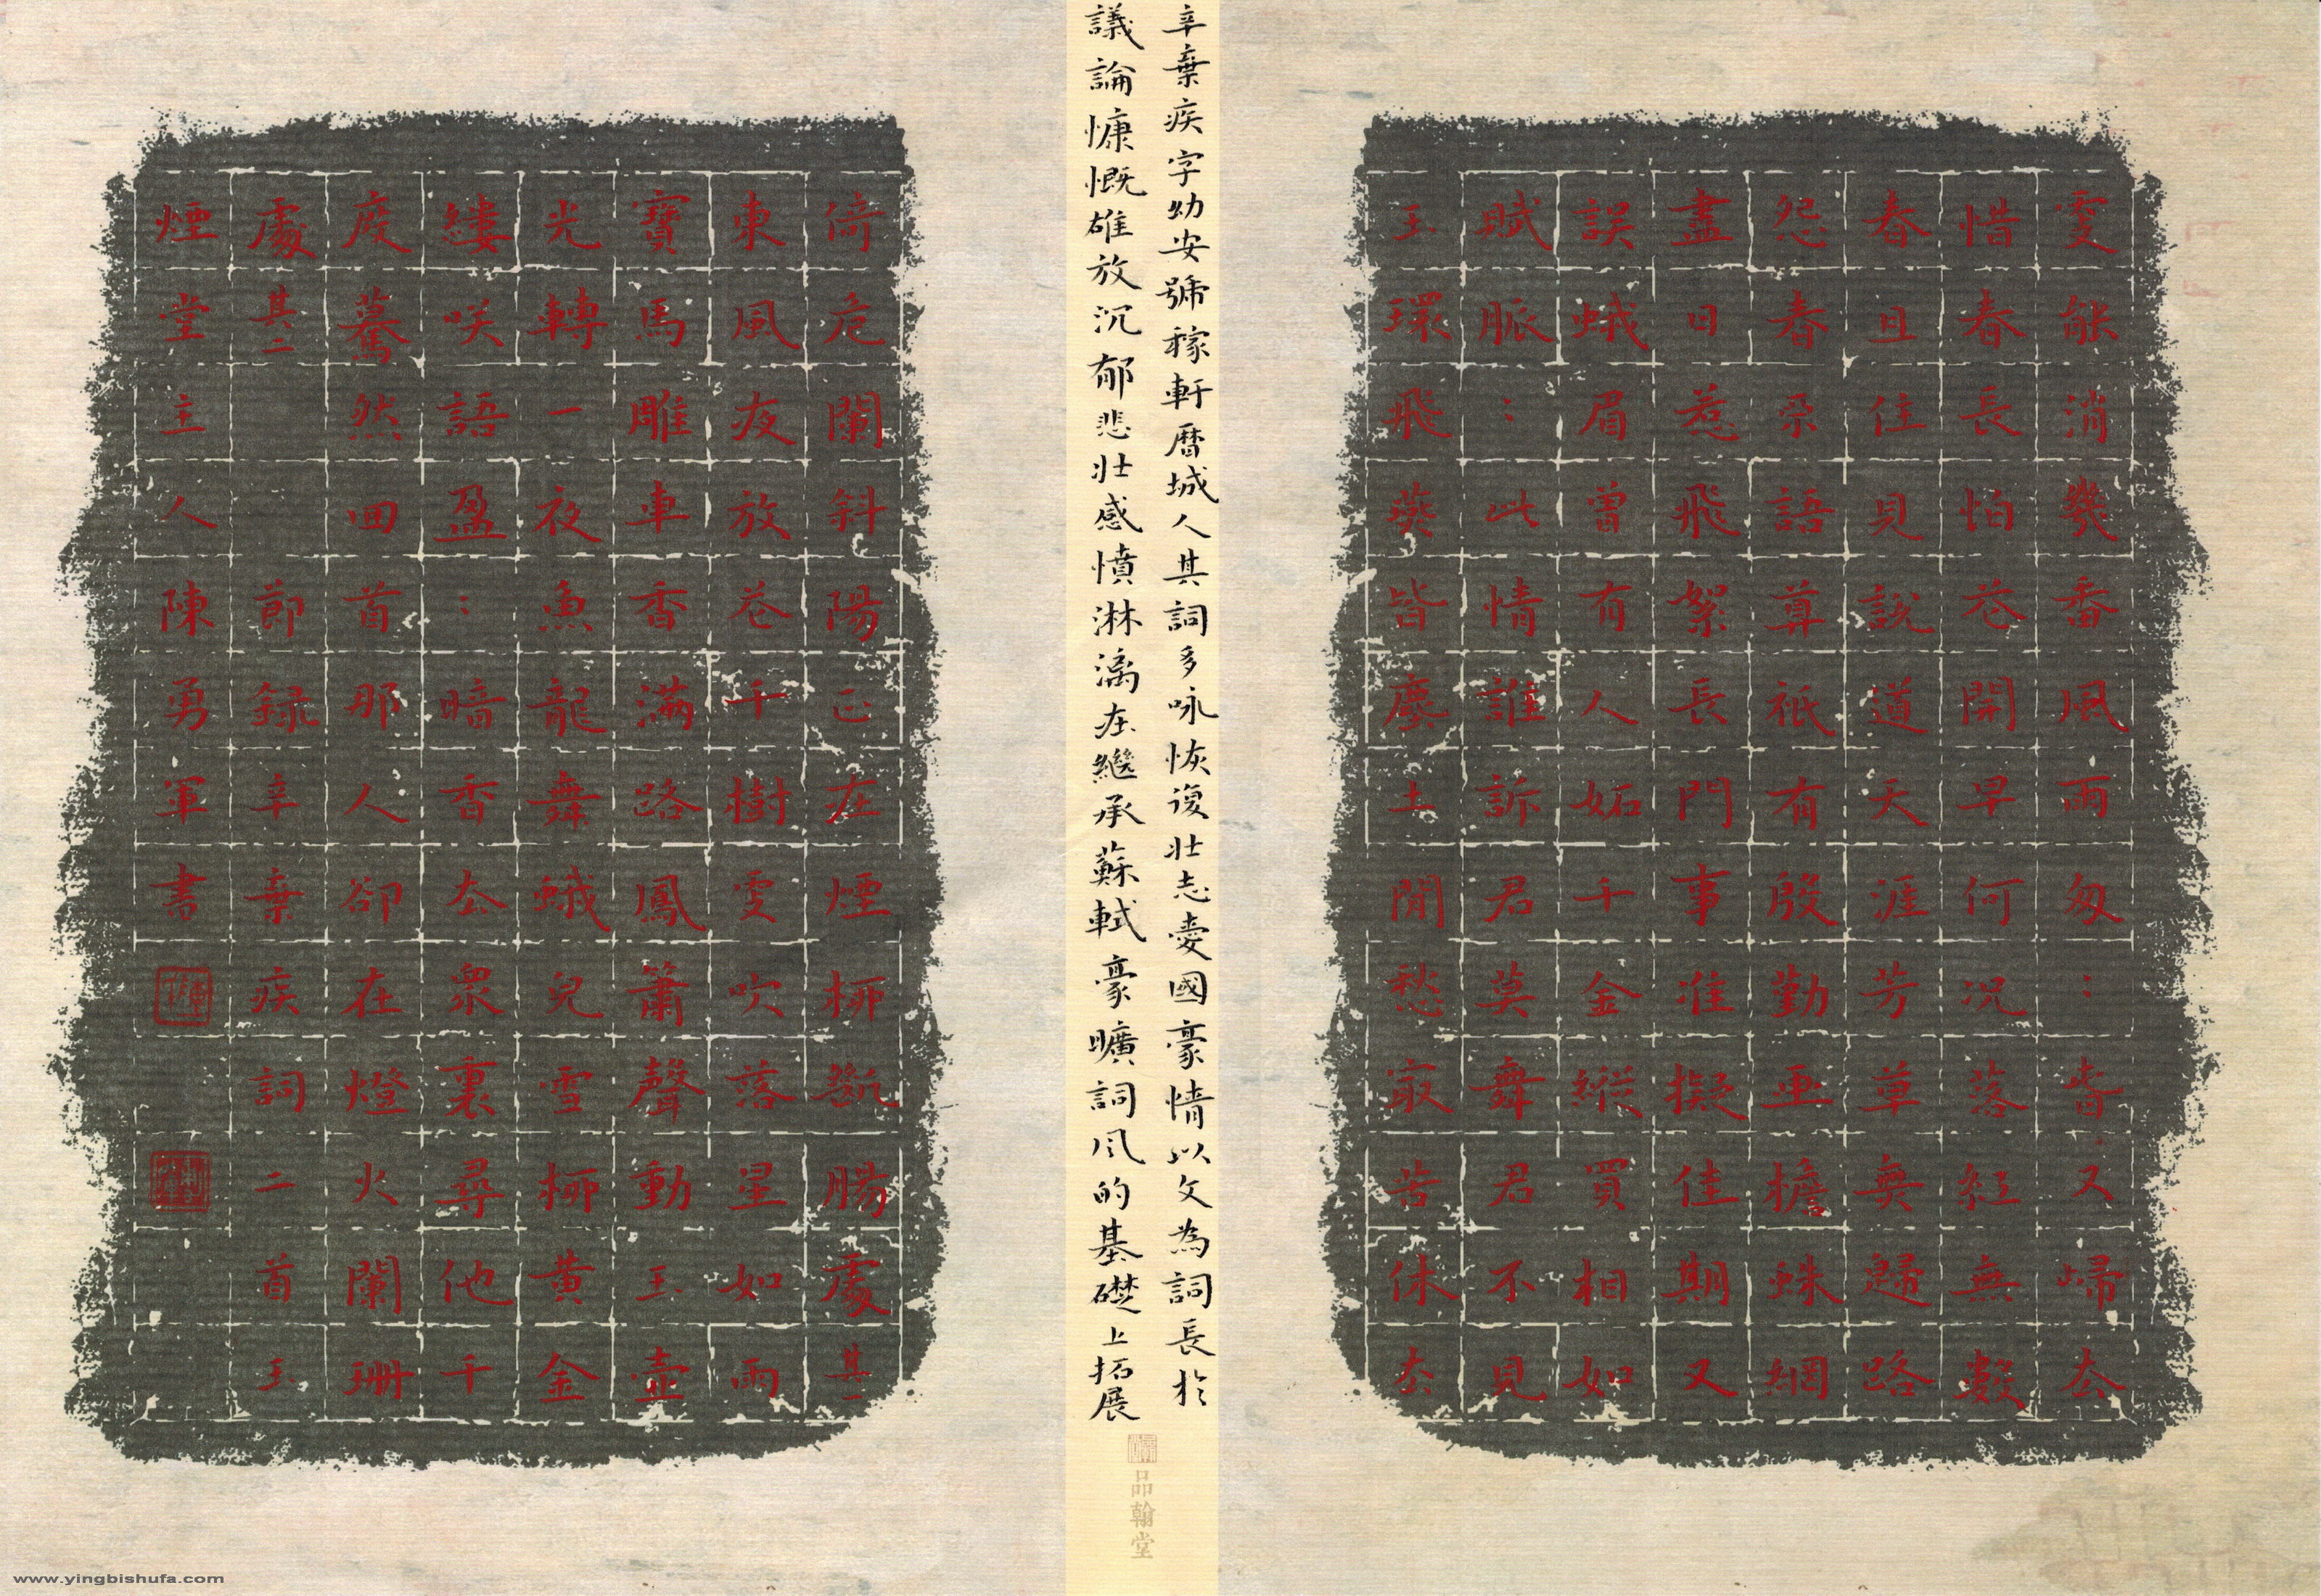 更能消幾番風雨匆：旾又歸去
惜春長怕花開早何況落紅無數
春且住見說道天涯芳草無歸路
怨春不語算祇有殷勤畫檐蛛網
盡日惹飛絮長門事準擬佳期又
誤蛾眉曾有人妬千金縱買相如
賦脈：此情誰訴君莫舞君不見
玉環飛燕皆塵土閒愁最苦休去
辛棄疾字幼安號稼軒曆城人其詞多咏恢復壯志愛國豪情以文為詞長於
議論慷慨雄放沉郁悲壯感憤淋漓在繼承蘇軾豪曠詞风的基礎上拓展
品翰堂
倚危闌斜陽正在煙柳斷腸處其一
東風夜放花千樹更吹落星如雨
寶馬雕車香滿路鳳簫聲動玉壺
光轉一夜魚龍舞蛾兒雪柳黃金
縷咲語盈：暗香去眾裏尋他千
度驀然回首那人卻在燈火闌珊
處其二 節錄辛棄疾詞二首玉
煙堂主人陳勇軍書
www.yingbishufa.com